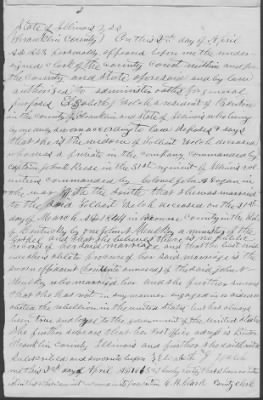 State of Illinois } SS
Franklin County } On this 3rd day of April
1863 personally appeared before me the under
signed Clerk of the County Court within and for
the County and State aforesaid and by law
authorized to administer oaths for general
purposes Elizabeth Welch a resident of Benton
in the County of Franklin and State of Illinois who being
by me duly sworn according to law deposes & says
that she is the widow of Welch deceased
who was a private in the company commanded by
Captain John Reese in the 31st regiment of Illinois vol
unteers commanded by Colonel John A Logan
who the South that she was married
to the said Welch deceased on the 31st
day of March 1844 in Monroe County in the State
of Kentucky by one John Mulky a minister of the
Gospel and that she believes there is no public
record of her said marriage and that the best evid
ence she is able to procure of her said marriage is the
of the said John
Mulky who married her and she further swears
that she has not in any manner engaged in or aided or
abetted the rebellion in the United States but has always
been true and loyal to the government of the United States
She further swears that her Post office address is Benton
Franklin County Illinois and further she saith not
Subscribed and sworn to before } Elizabeth Welch
me this 3rd day of April AD 1863
Clerk County Clerk